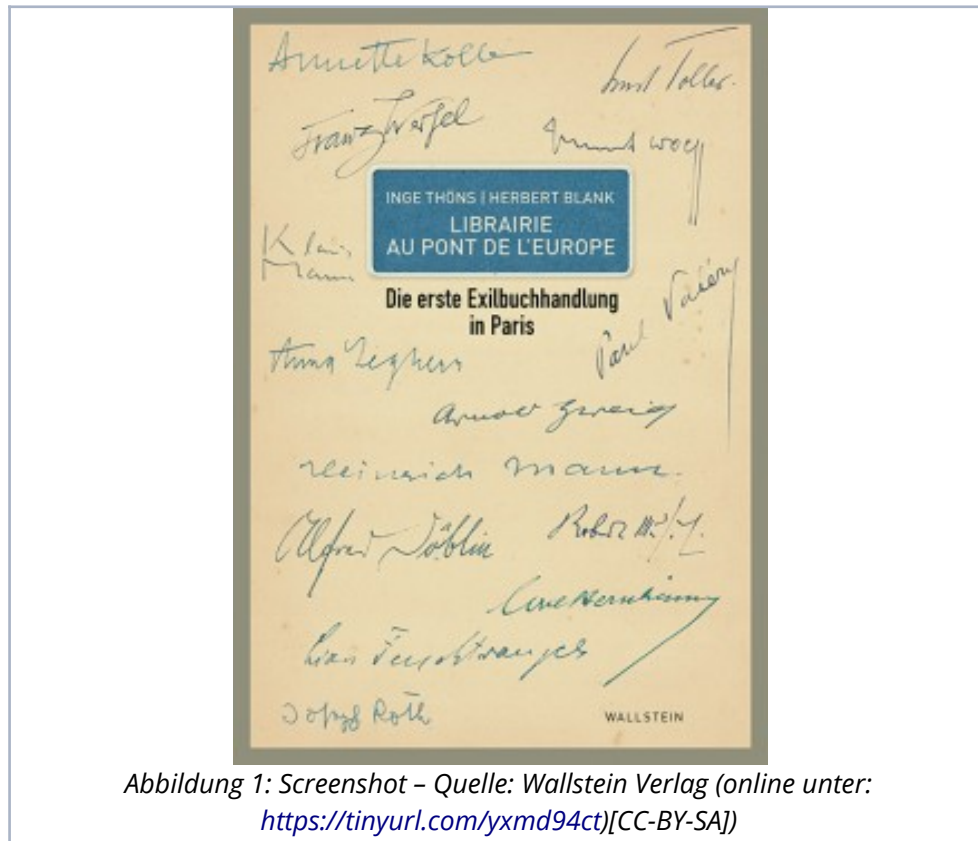 Annette Kolb
Ernst Toller.
Franz Werfel
INGE THÖNS | HERBERT BLANK
LIBRAIRIE
AU PONT DE L'EUROPE
Klaus
Mann
Die erste Exilbuchhandlung
in Paris
Paul Valéry
Anna Seghers
Arnold Zweig
Heinrich Mann.
Alfred Döblin
Robert
Lion Feuchtwanger
Joseph Roth
WALLSTEIN
Abbildung 1: Screenshot – Quelle: Wallstein Verlag (online unter:
https://tinyurl.com/yxmd94ct)[CC-BY-SA])